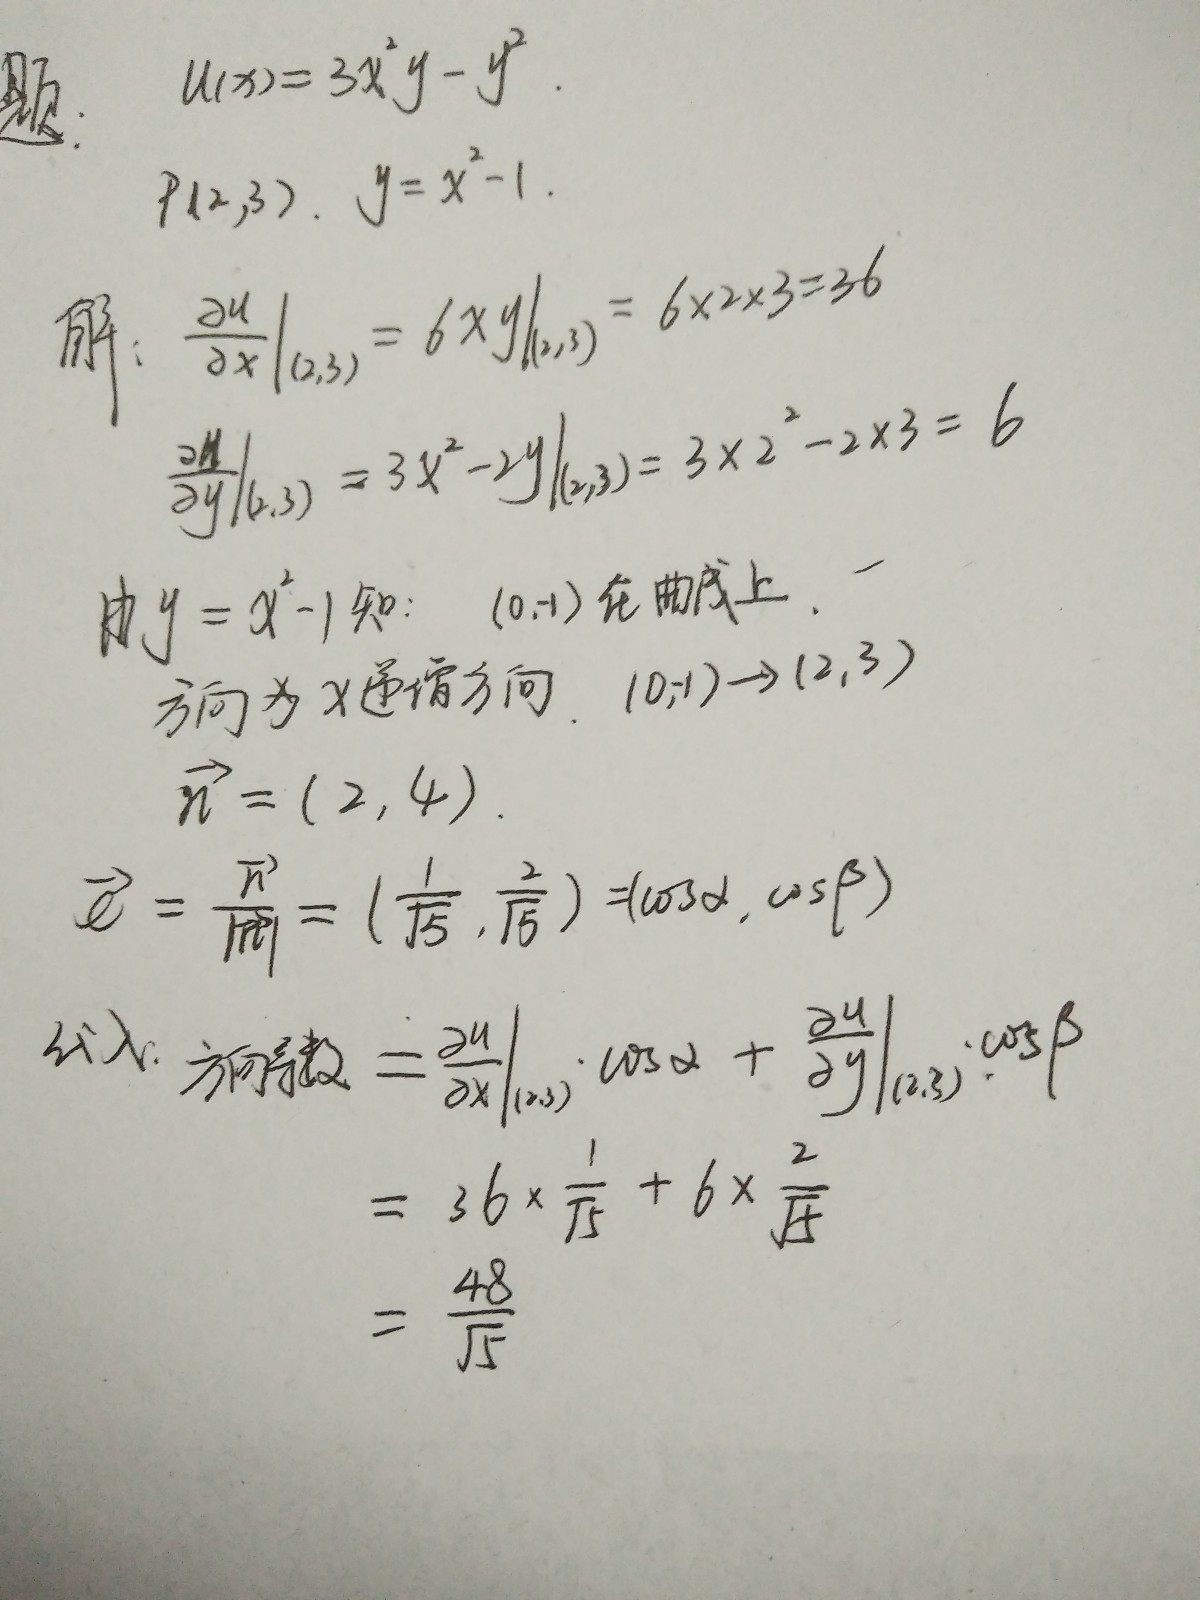 题: u(x)=3x²y-y².
P(2,3). y=x²-1.
解: ∂u/∂x|(2,3) = 6xy|(2,3) = 6×2×3=36
∂u/∂y|(2,3) = 3x²-2y|(2,3) = 3×2²-2×3 = 6
由y=x²-1知: (0,-1)在曲线上.
方向为x递增方向. (0,-1)→(2,3)
n⃗ = (2,4).
e⃗ = n⃗/|n⃗| = (1/√5, 2/√5) =(cosα, cosβ)
代入: 方向导数 = ∂u/∂x|(2,3)·cosα + ∂u/∂y|(2,3)·cosβ
= 36×1/√5 + 6×2/√5
= 48/√5